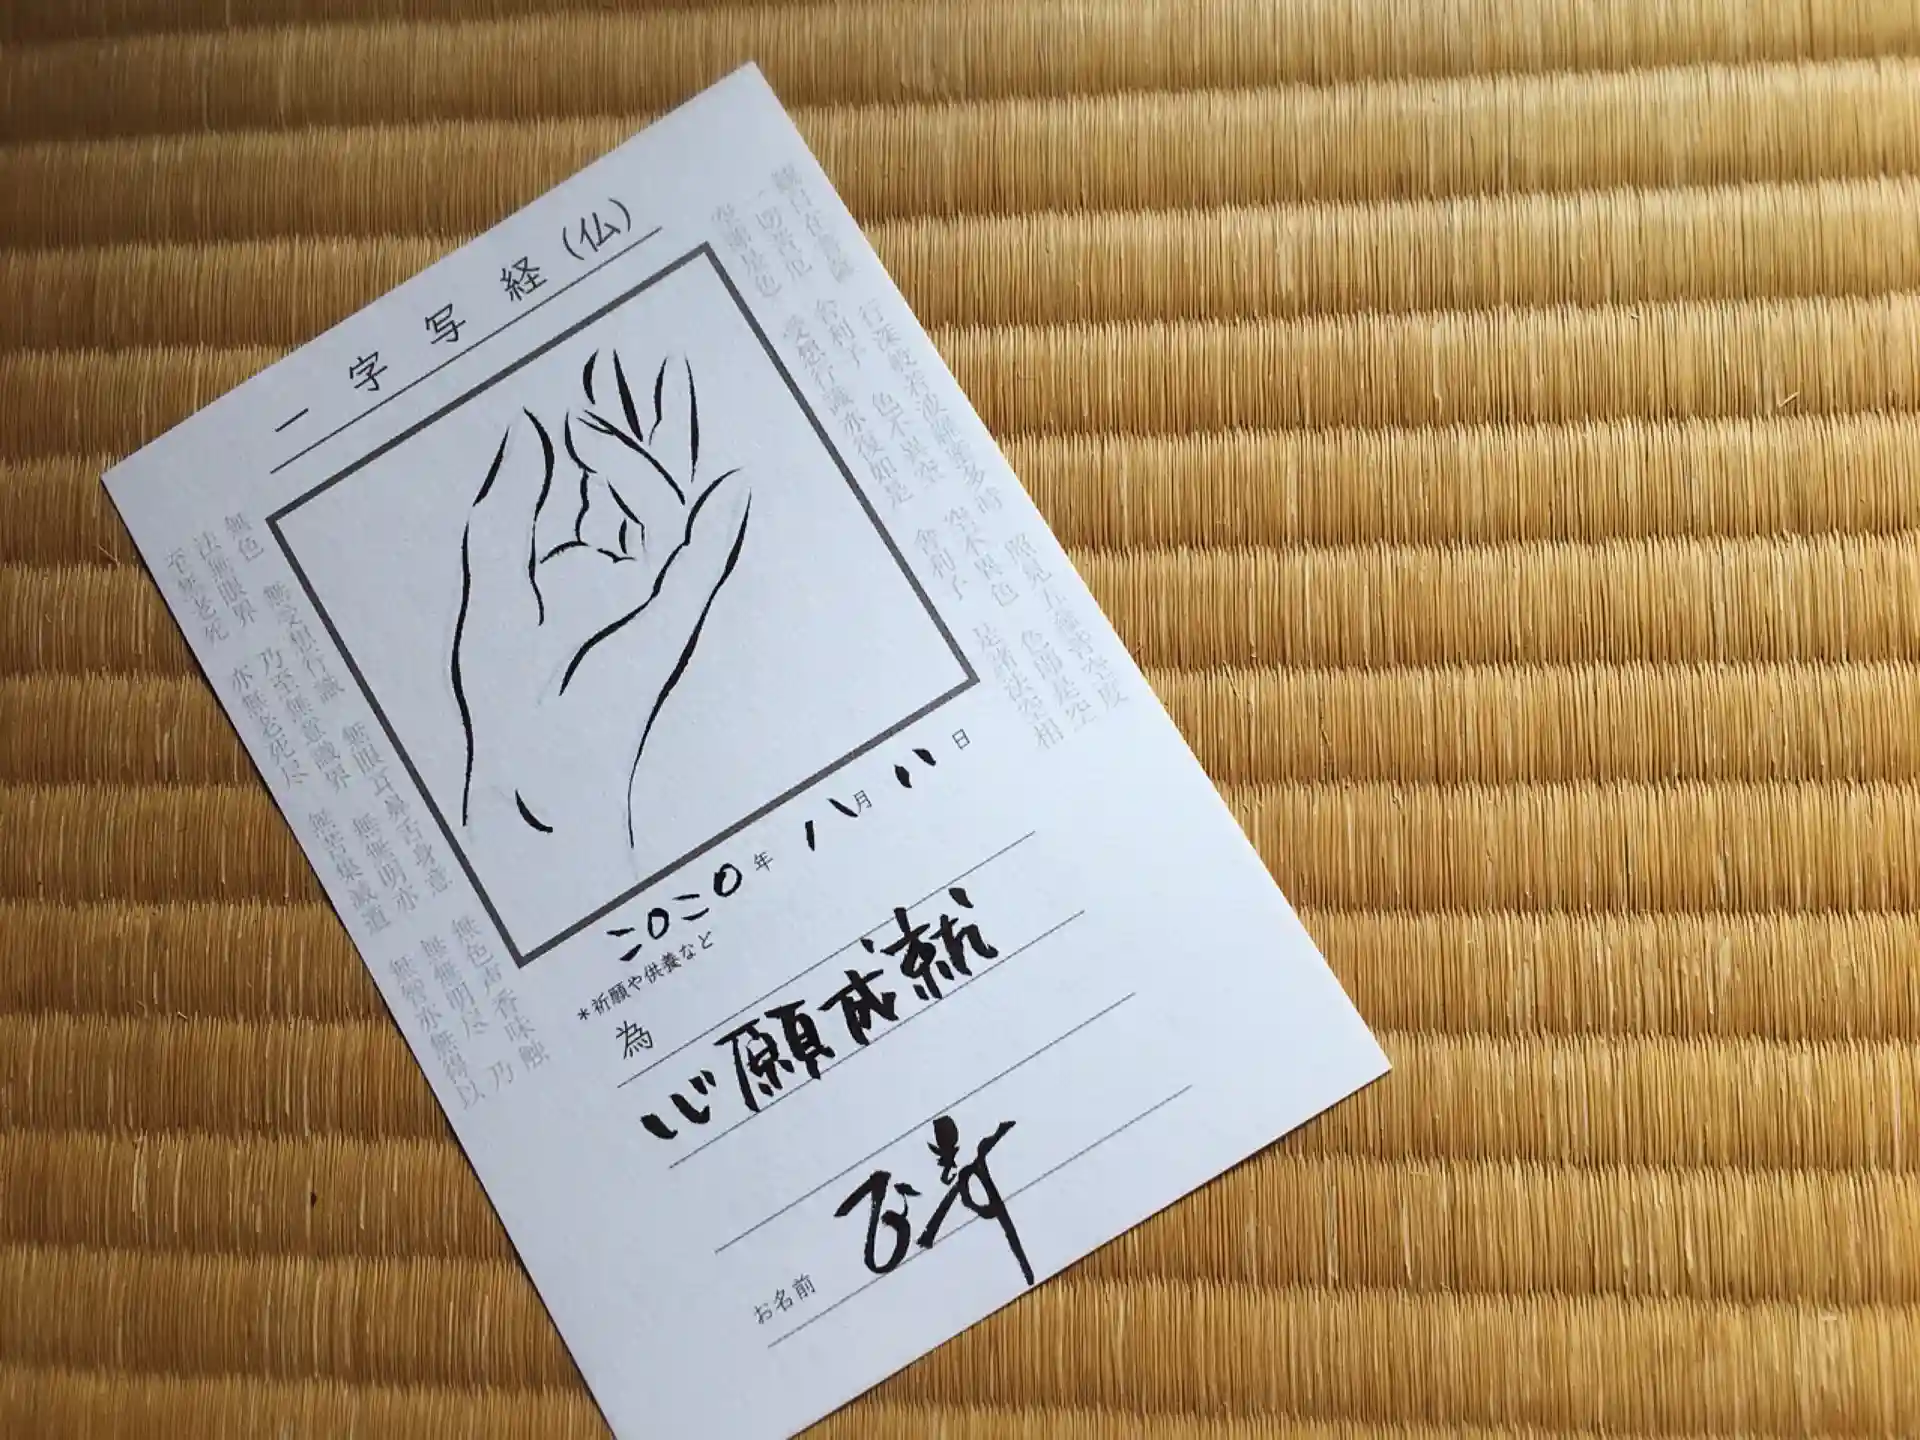 一字写経(仏)
観自在菩薩 行深般若波羅蜜多時 照見五蘊皆空度
一切苦厄 舎利子 色不異空 空不異色 色即是空
空即是色 受想行識亦復如是 舎利子 是諸法空相
無色 無受想行識 無眼耳鼻舌身意 無色声香味触
法無眼界 乃至無意識界 無無明亦 無無明尽 乃
至無老死 亦無老死尽 無苦集滅道 無智亦無得以
二〇二〇年 八月 八日
*祈願や供養など
為
心願成就
お名前